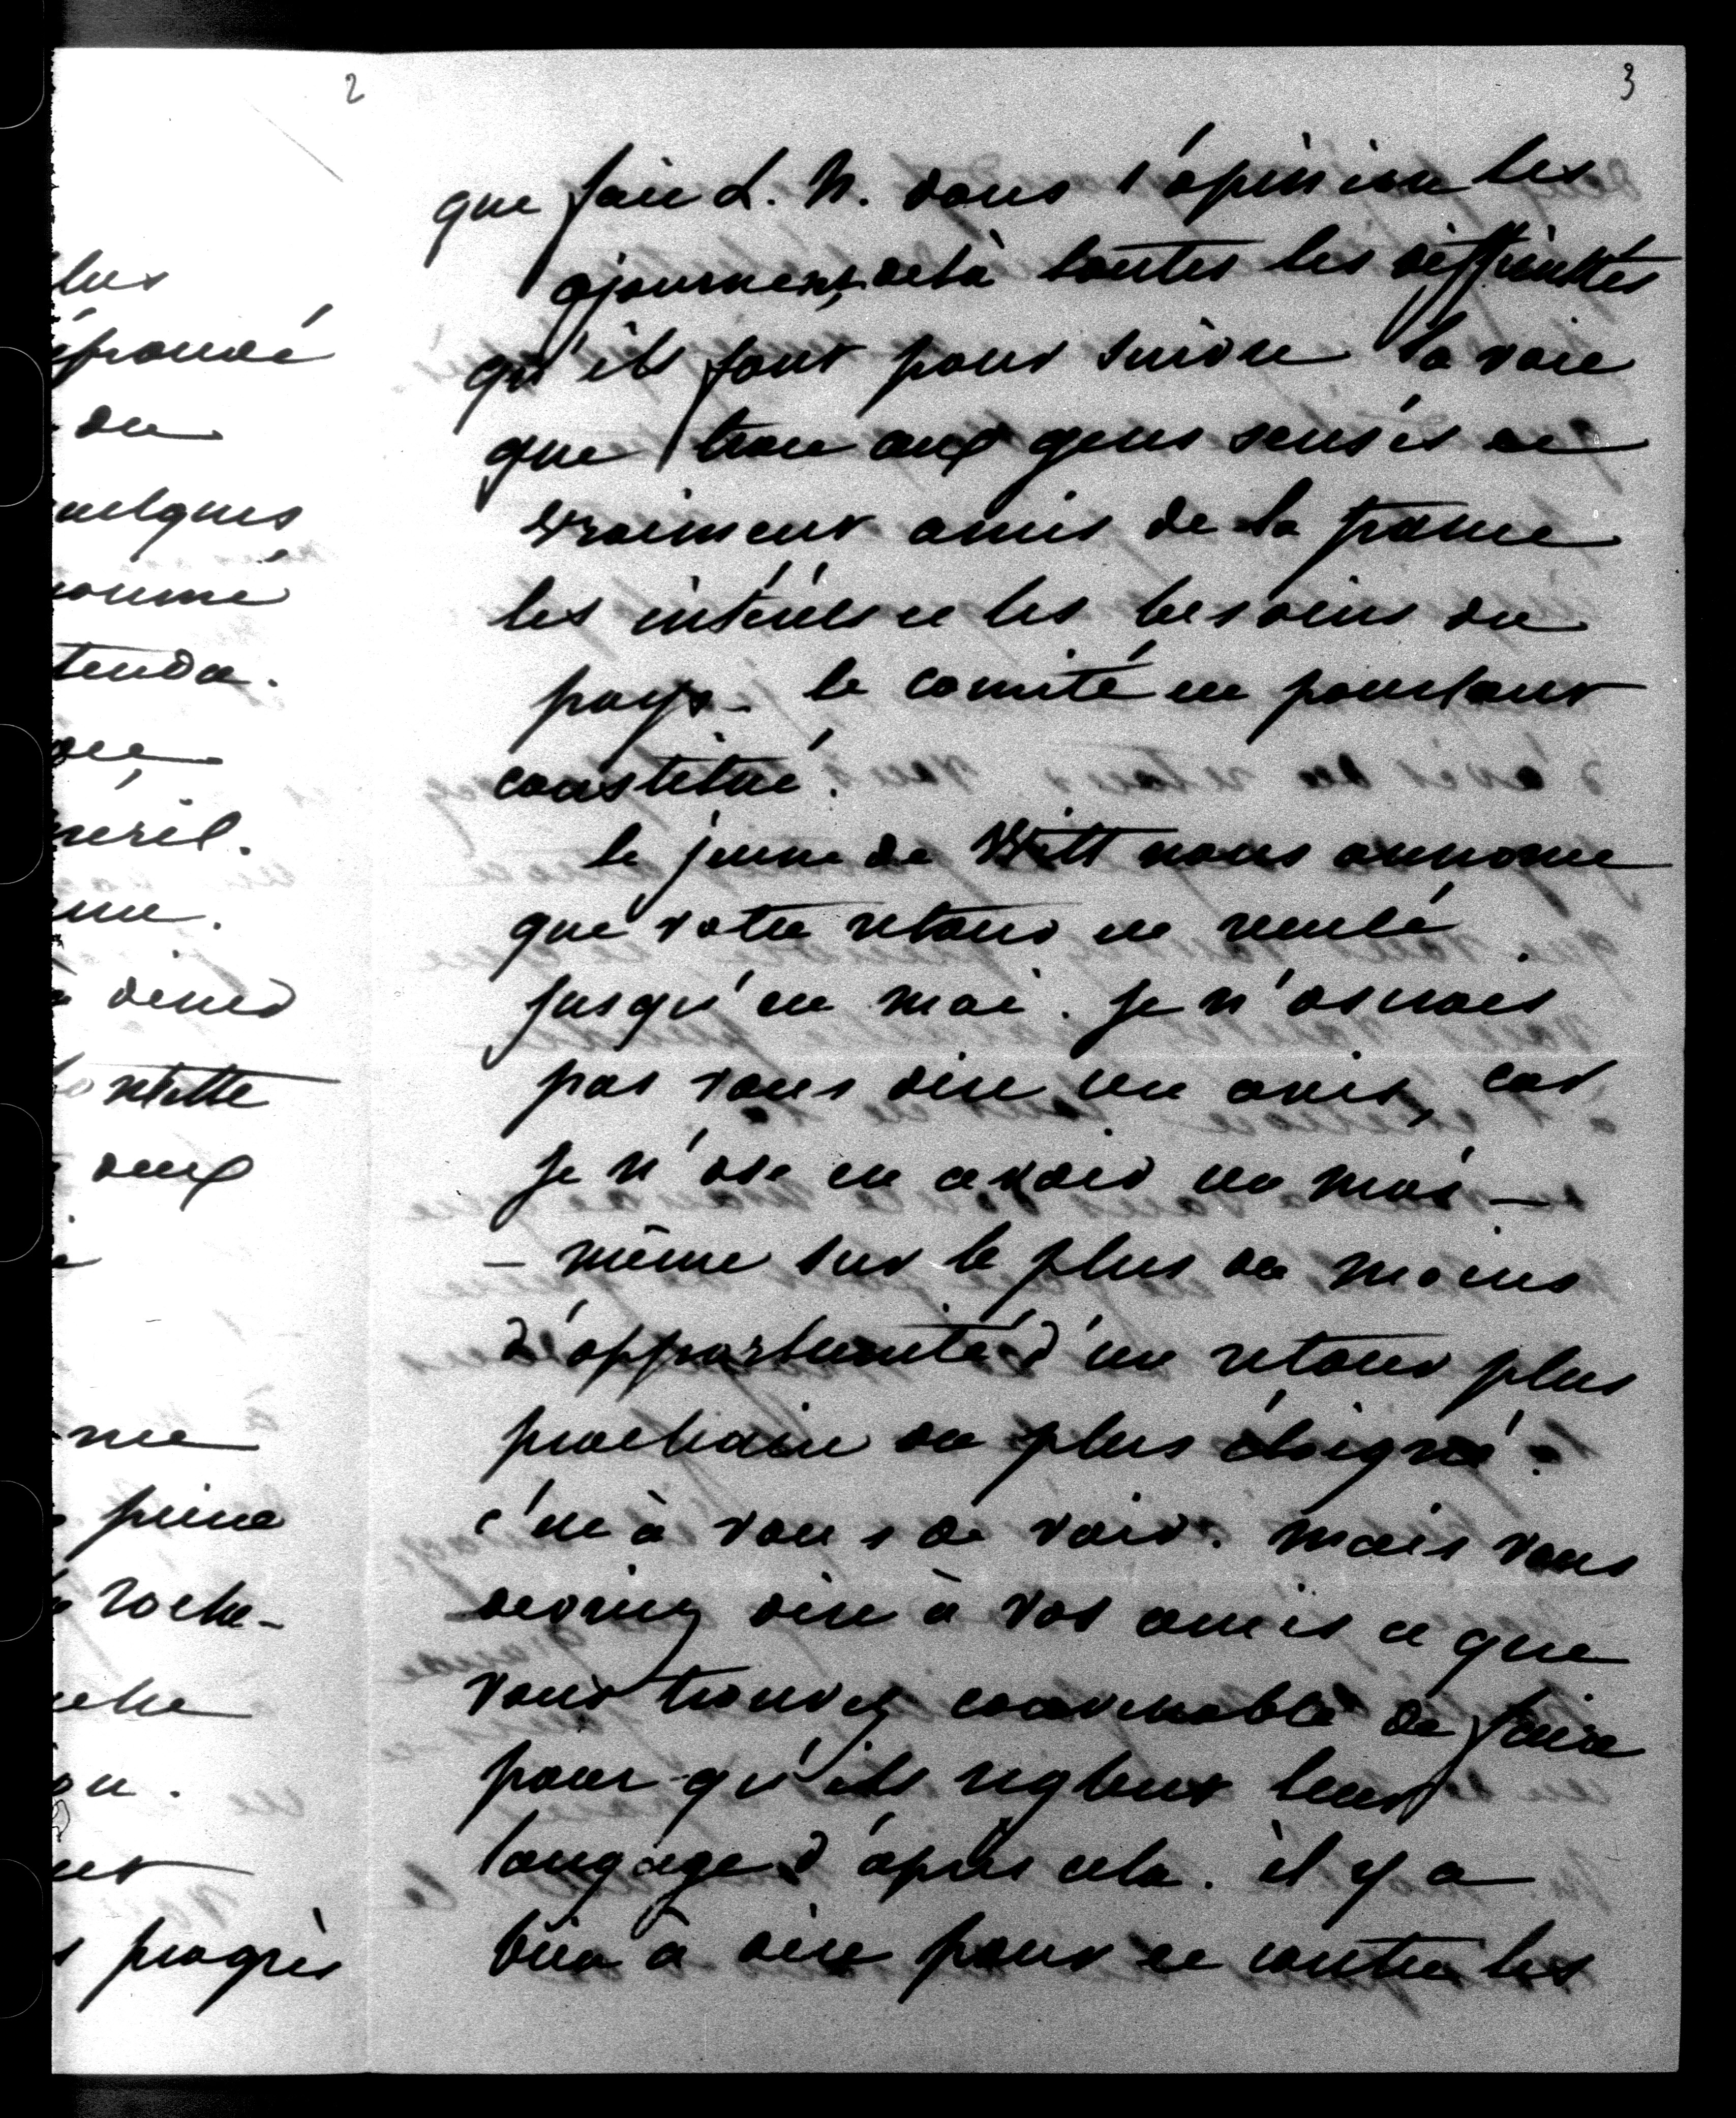 2
lus
éprouvé
du
uelques
oumé
tenda.
péril.
dîner
nette
deux
peine
roche-
on.
progrès
3
que fait L. N. dans l'opinion les
ajournent, delà toutes les difficultés
qu'ils font pour suivre la voie
que trace aux gens sensés et
vraiment amis de la france
les intérêts et les besoins du
pays - le comité est pourtant
constitué.
le jeune de Witt nous annonce
que votre retour est reculé
jusqu'en mai. Je n'oserais
pas vous dire un avis, car
je n'ose en avoir un moi -
- même sur le plus ou moins
d'opportunité d'un retour plus
prochain ou plus éloigné.
c'est à vous de voir. mais vous
devriez dire à vos amis ce que
vous trouvez convenable de faire
pour qu'ils règlent leur
langage d'après cela. il y a
bien à dire pour et contre les